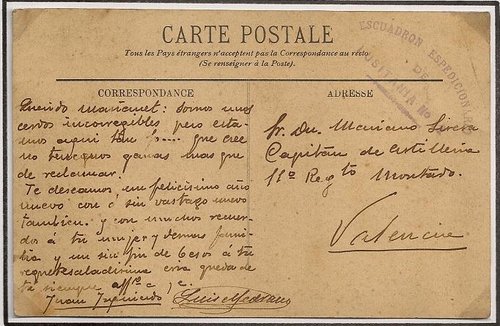 CARTE POSTALE
Tous les Pays étrangers n'acceptent pas la Correspondance au recto
(Se renseigner à la Poste).
ESCUADRON EXPEDICIONARIO
DE
LUSITANIA
CORRESPONDANCE
Querido Marianet: somos unos
cerdos incorregibles pero esta-
mos aquí tan f.... que cree
no tenemos ganas mas que
de reclamar.
Te deseamos, un felicisimo año
nuevo con ó sin vastago nuevo
tambien. y con muchos recuer-
dos á tu mujer y demas fami-
lia y un sin fin de besos á tu
queda de
te siempre affº
Juan Izquierdo Luis
ADRESSE
Sr. Dn. Mariano
Capitán de Artilleria
11º Regto Montado.
Valencia